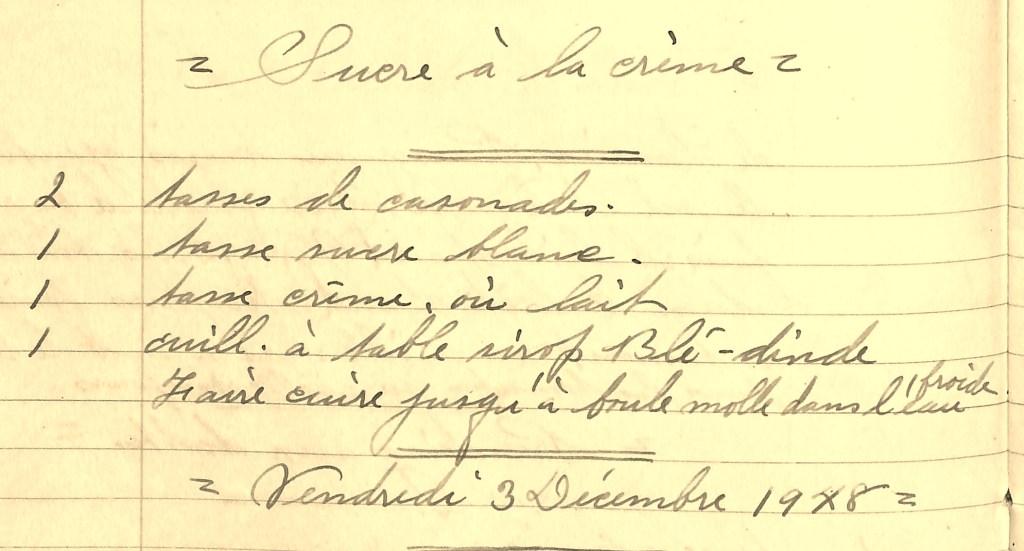 = Sucre à la crème =
2 tasses de casonades.
1 tasse sucre blanc.
1 tasse crème. où lait
1 cuill. à table sirop Blé-dinde
Faire cuire jusqu'à boule molle dans l'eau froide.
= Vendredi 3 Décembre 1948 =